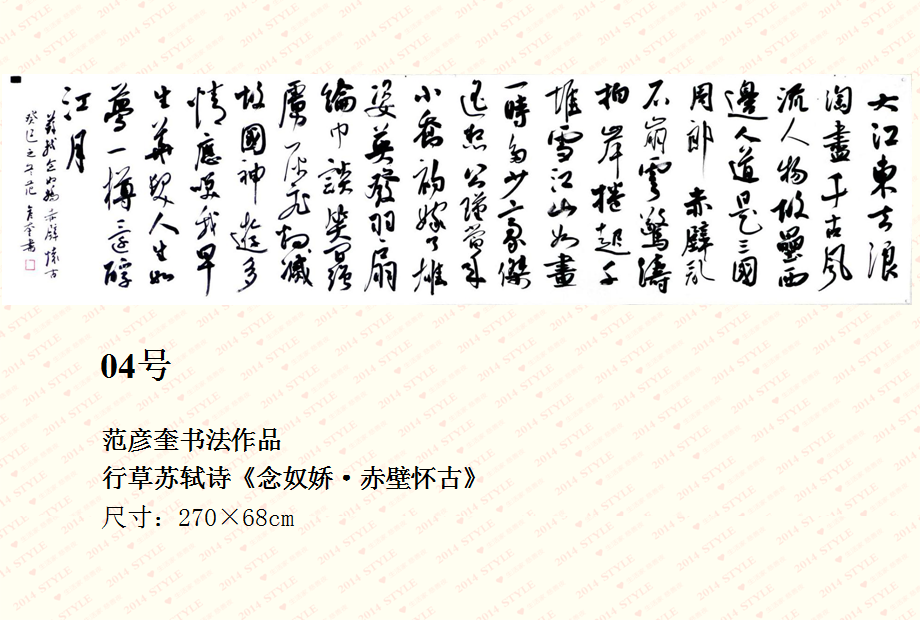 大江東去浪
淘盡千古風
流人物故壘西
邊人道是三國
周郎赤壁亂
石崩雲驚濤
拍岸捲起千
堆雪江山如畫
一時多少豪傑
遥想公瑾當年
小喬初嫁了雄
姿英發羽扇
綸巾談笑間強
虜灰飛烟滅
故國神遊多
情應笑我早
生華髮人生如
夢一樽還酹
江月
蘇軾念奴嬌赤壁懷古
癸巳之午范彦奎書
04号
范彦奎书法作品
行草苏轼诗《念奴娇·赤壁怀古》
尺寸：270×68cm
2014 STYLE